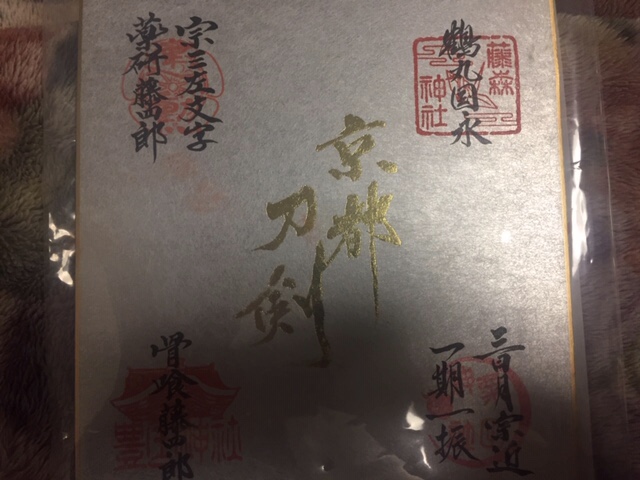 鶴丸国永
藤森
神社
宗三左文字
薬研藤四郎
京都
刀剣
三日月宗近
一期一振
骨喰藤四郎
神社